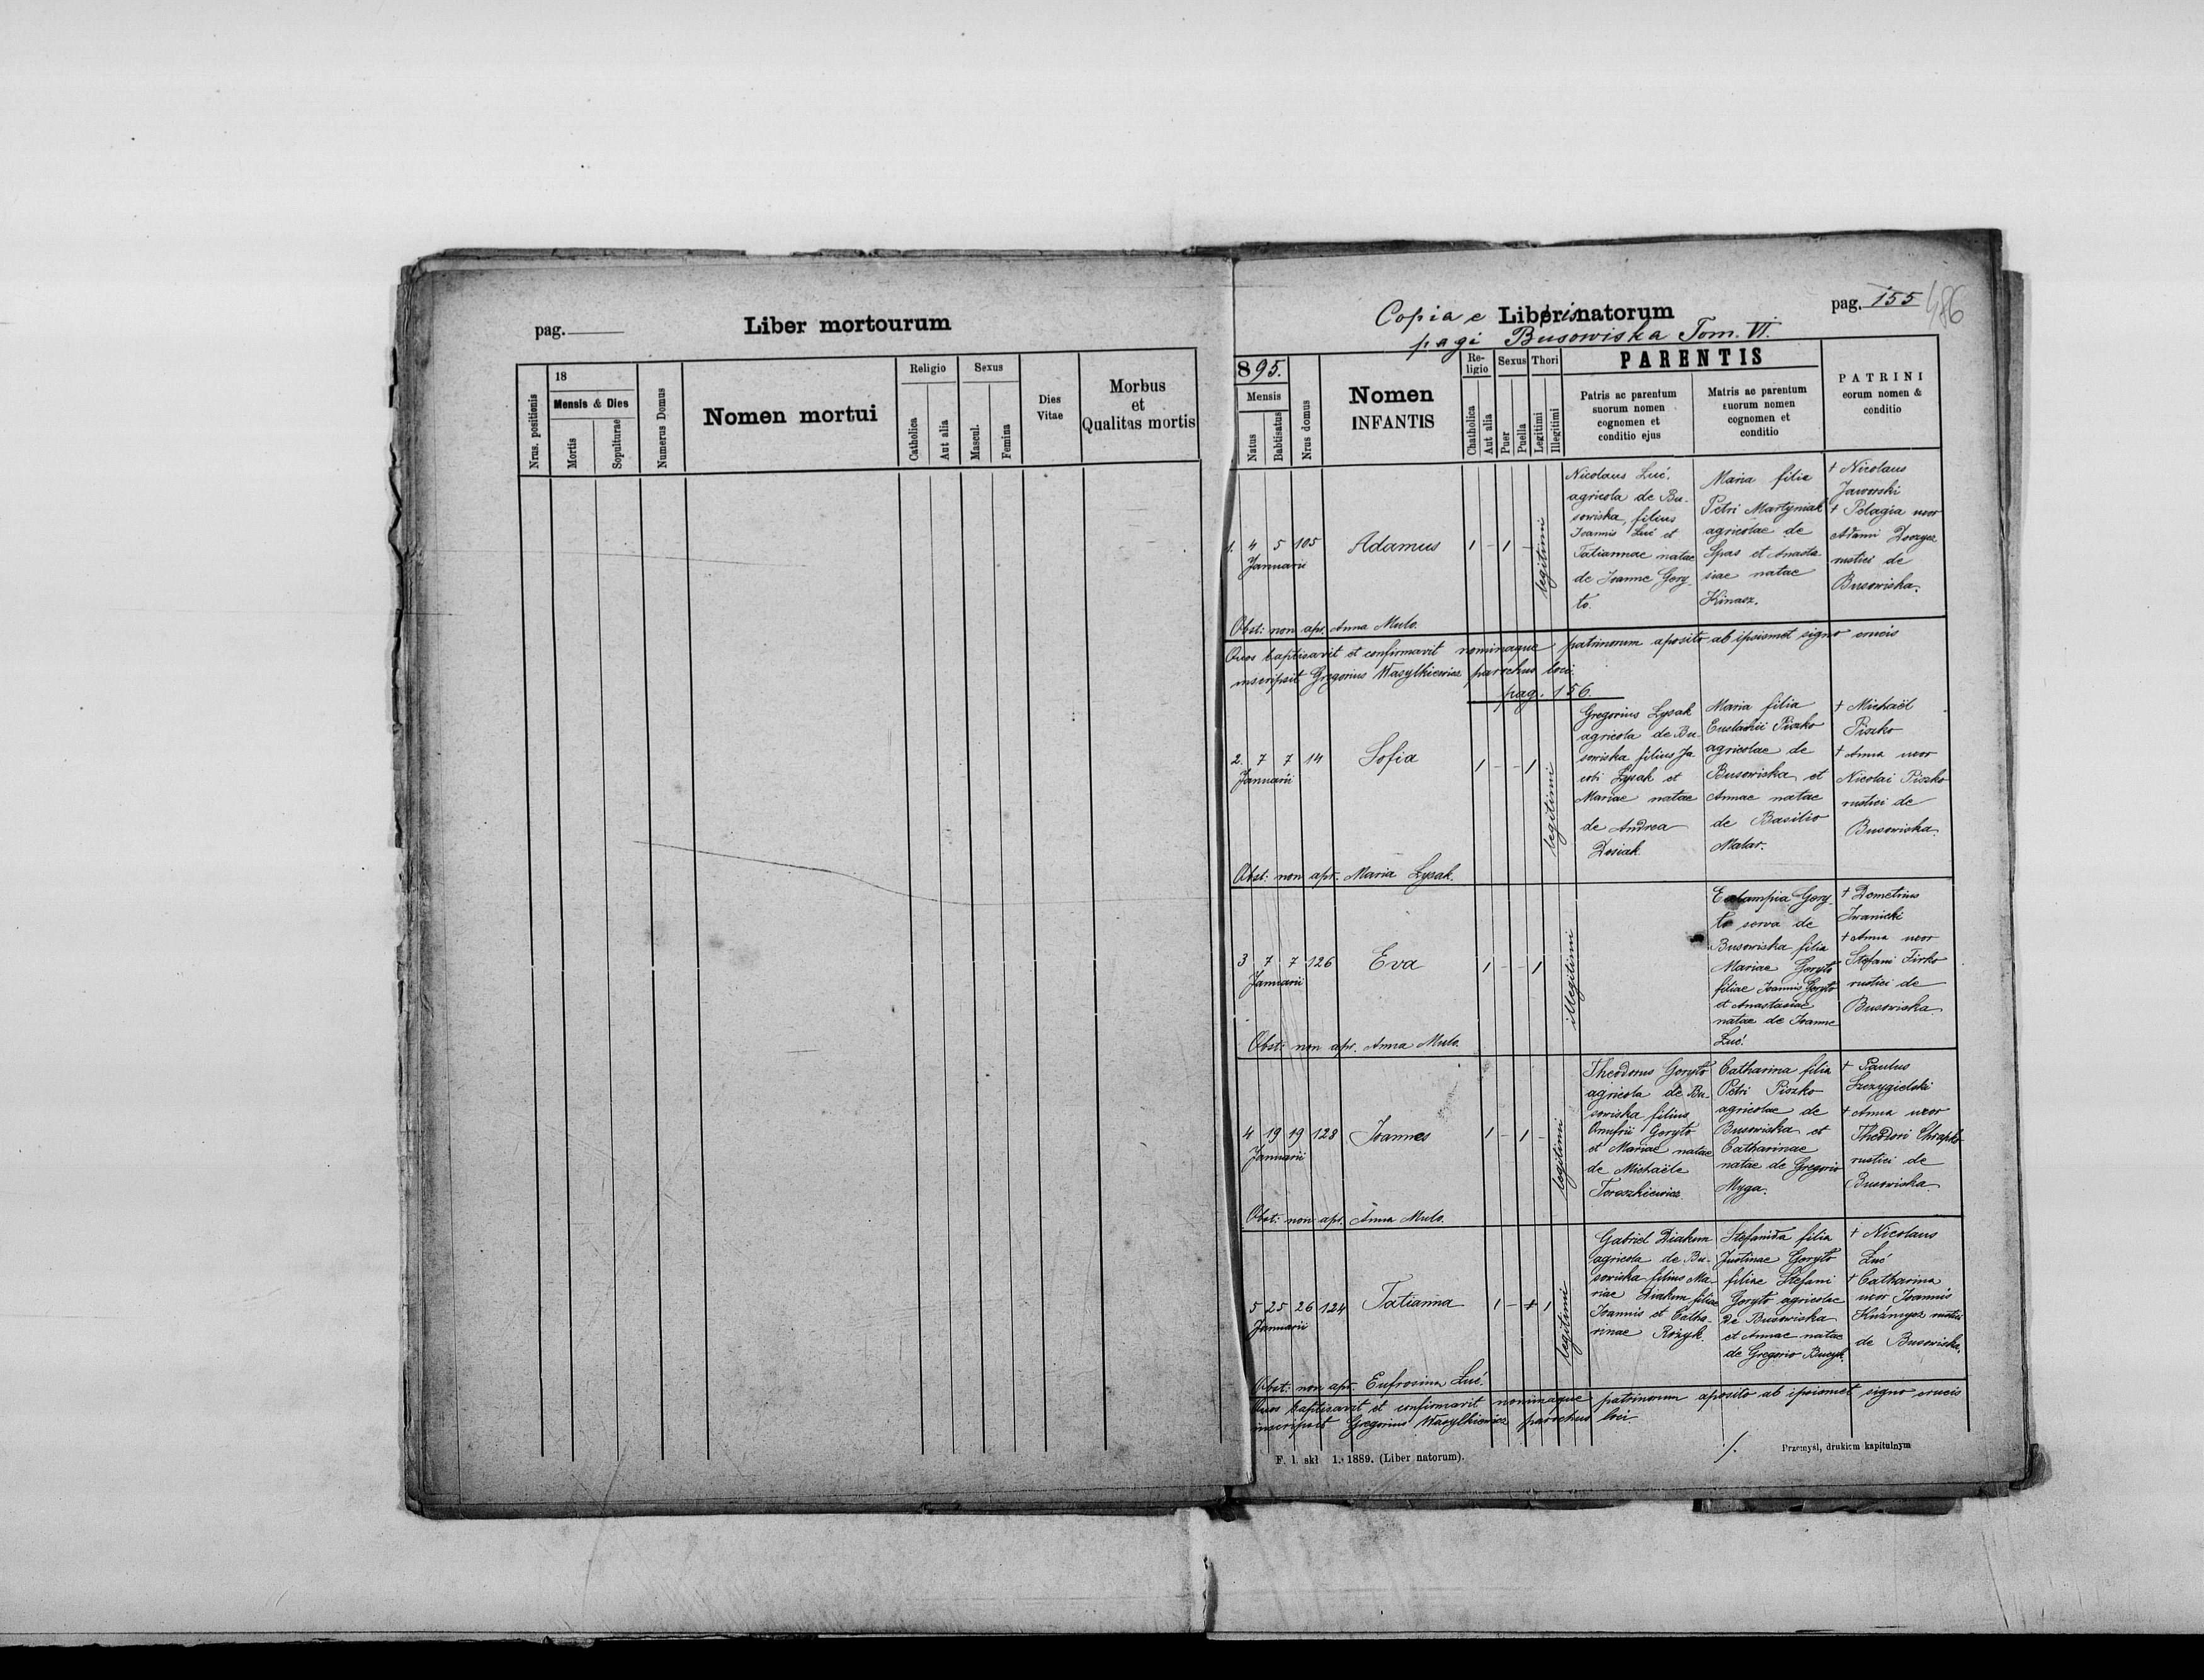 pag.
Liber mortourum
Nrus. positionis
18
Mensis & Dies
Mortis
Sopulturae
Numerus Domus
Nomen mortui
Religio
Catholica
Aut alia
Sexus
Mascul.
Femina
Dies
Vitae
Morbus
et
Qualitas mortis
Copia e Liberis natorum
pag. 155
486
pagi Busowiska Tom. VI.
895.
Mensis
Natus
Babtisatus
Nrus domus
Nomen
INFANTIS
Re-
ligio
Chatholica
Aut alia
Sexus
Puer
Puella
Thori
Legitimi
Illegitimi
PARENTIS
Patris ac parentum
suorum nomen
cognomen et
conditio ejus
Matris ac parentum
suorum nomen
cognomen et
conditio
PATRINI
eorum nomen &
conditio
1. 4 5 105
Januarii
Adamus
1 - 1 -
legitimi
Nicolaus Łuć,
agricola de Bu-
sowiska, filius
Joannis Łuć et
Tatiannae natae
de Joanne Gory-
to.
Maria filia
Petri Martyniak
agricolae de
Spas et Anasta
siae natae
Kinasz.
† Nicolaus
Jaworski
† Pelagia uxor
Adami
rustici de
Busowiska.
Obst: non apr. Anna Mulo.
Quos baptisavit et confirmavit nominaque patrinorum aposito ab ipsismet signo crucis
inscripsit Gregorius Wasylkiewicz parochus loci.
pag. 156.
2. 7 7 14
Januarii
Sofia
1 - - 1
legitimi
Gregorius Łysak
agricola de Bu-
sowiska filius Ja
cobi Łysak et
Mariae natae
de Andrea
Maria filia
Eustachii Piszko
agricolae de
Busowiska et
Annae natae
de Basilio
Malar.
† Michaël
Piszko
† Anna uxor
Nicolai Piszko
rustici de
Busowiska.
Obst: non apr. Maria Łysak.
3 7 7 126
Januarii
Eva
1 - - 1
illegitimi
Eulampia Gory-
to serva de
Busowiska filia
Mariae Goryto
filiae Joannis Goryto
et Anastasiae
natae de Joanne
Łuć.
† Demetrius
Iwanicki
† Anna uxor
Stefani Firko
rustici de
Busowiska
Obst: non apr. Anna Mulo.
4 19 19 128
Januarii
Joannes
1 - 1 -
legitimi
Theodorus Goryto
agricola de Bu-
sowiska filius
Onufrii Goryto
et Mariae natae
de Michaële
Toraszkiewicz.
Catharina filia
Petri Piszko
agricolae de
Busowiska et
Catharinae
natae de Gregorio
Myga.
† Paulus
Szczygielski
† Anna uxor
Theodori Chrapko
rustici de
Busowiska
Obst: non apr. Anna Mulo.
5 25 26 124
Januarii
Tatianna
1 - 1
legitimi
Gabriel Diakun
agricola de Bu-
sowiska filius Ma-
riae Diakun filiae
Joannis et Catha-
rinae Rożyk.
Stefanida filia
Justinae Goryto
filiae Stefani
Goryto agricolae
de Busowiska
et Annae natae
de Gregorio Bucyk.
† Nicolaus
Łuć
† Catharina
uxor Joannis
Kuźmycz rustici
de Busowiska.
Obst: non apr. Eufrosina Łuć.
Quos baptisavit et confirmavit nominaque patrinorum aposito ab ipsismet signo crucis
inscripsit Gregorius Wasylkiewicz parochus loci
./.
F. l. skł 1. 1889. (Liber natorum).
Przemyśl, drukiem kapitulnym